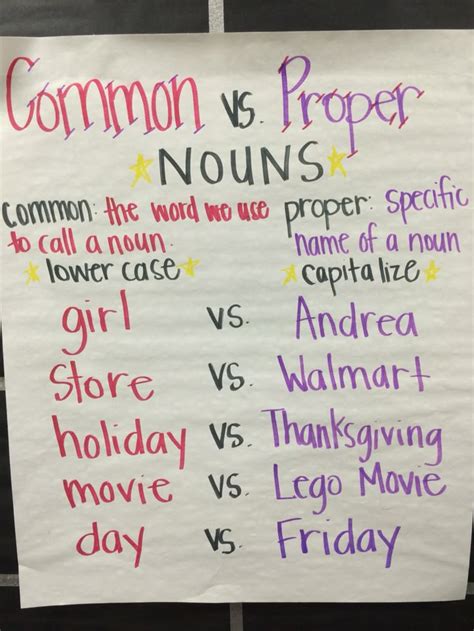 Common vs. Proper
NOUNS
common: the word we use
to call a noun.
proper: specific
name of a noun
lower case
capitalize
girl vs. Andrea
Store vs. Walmart
holiday vs. Thanksgiving
movie vs. Lego Movie
day vs. Friday